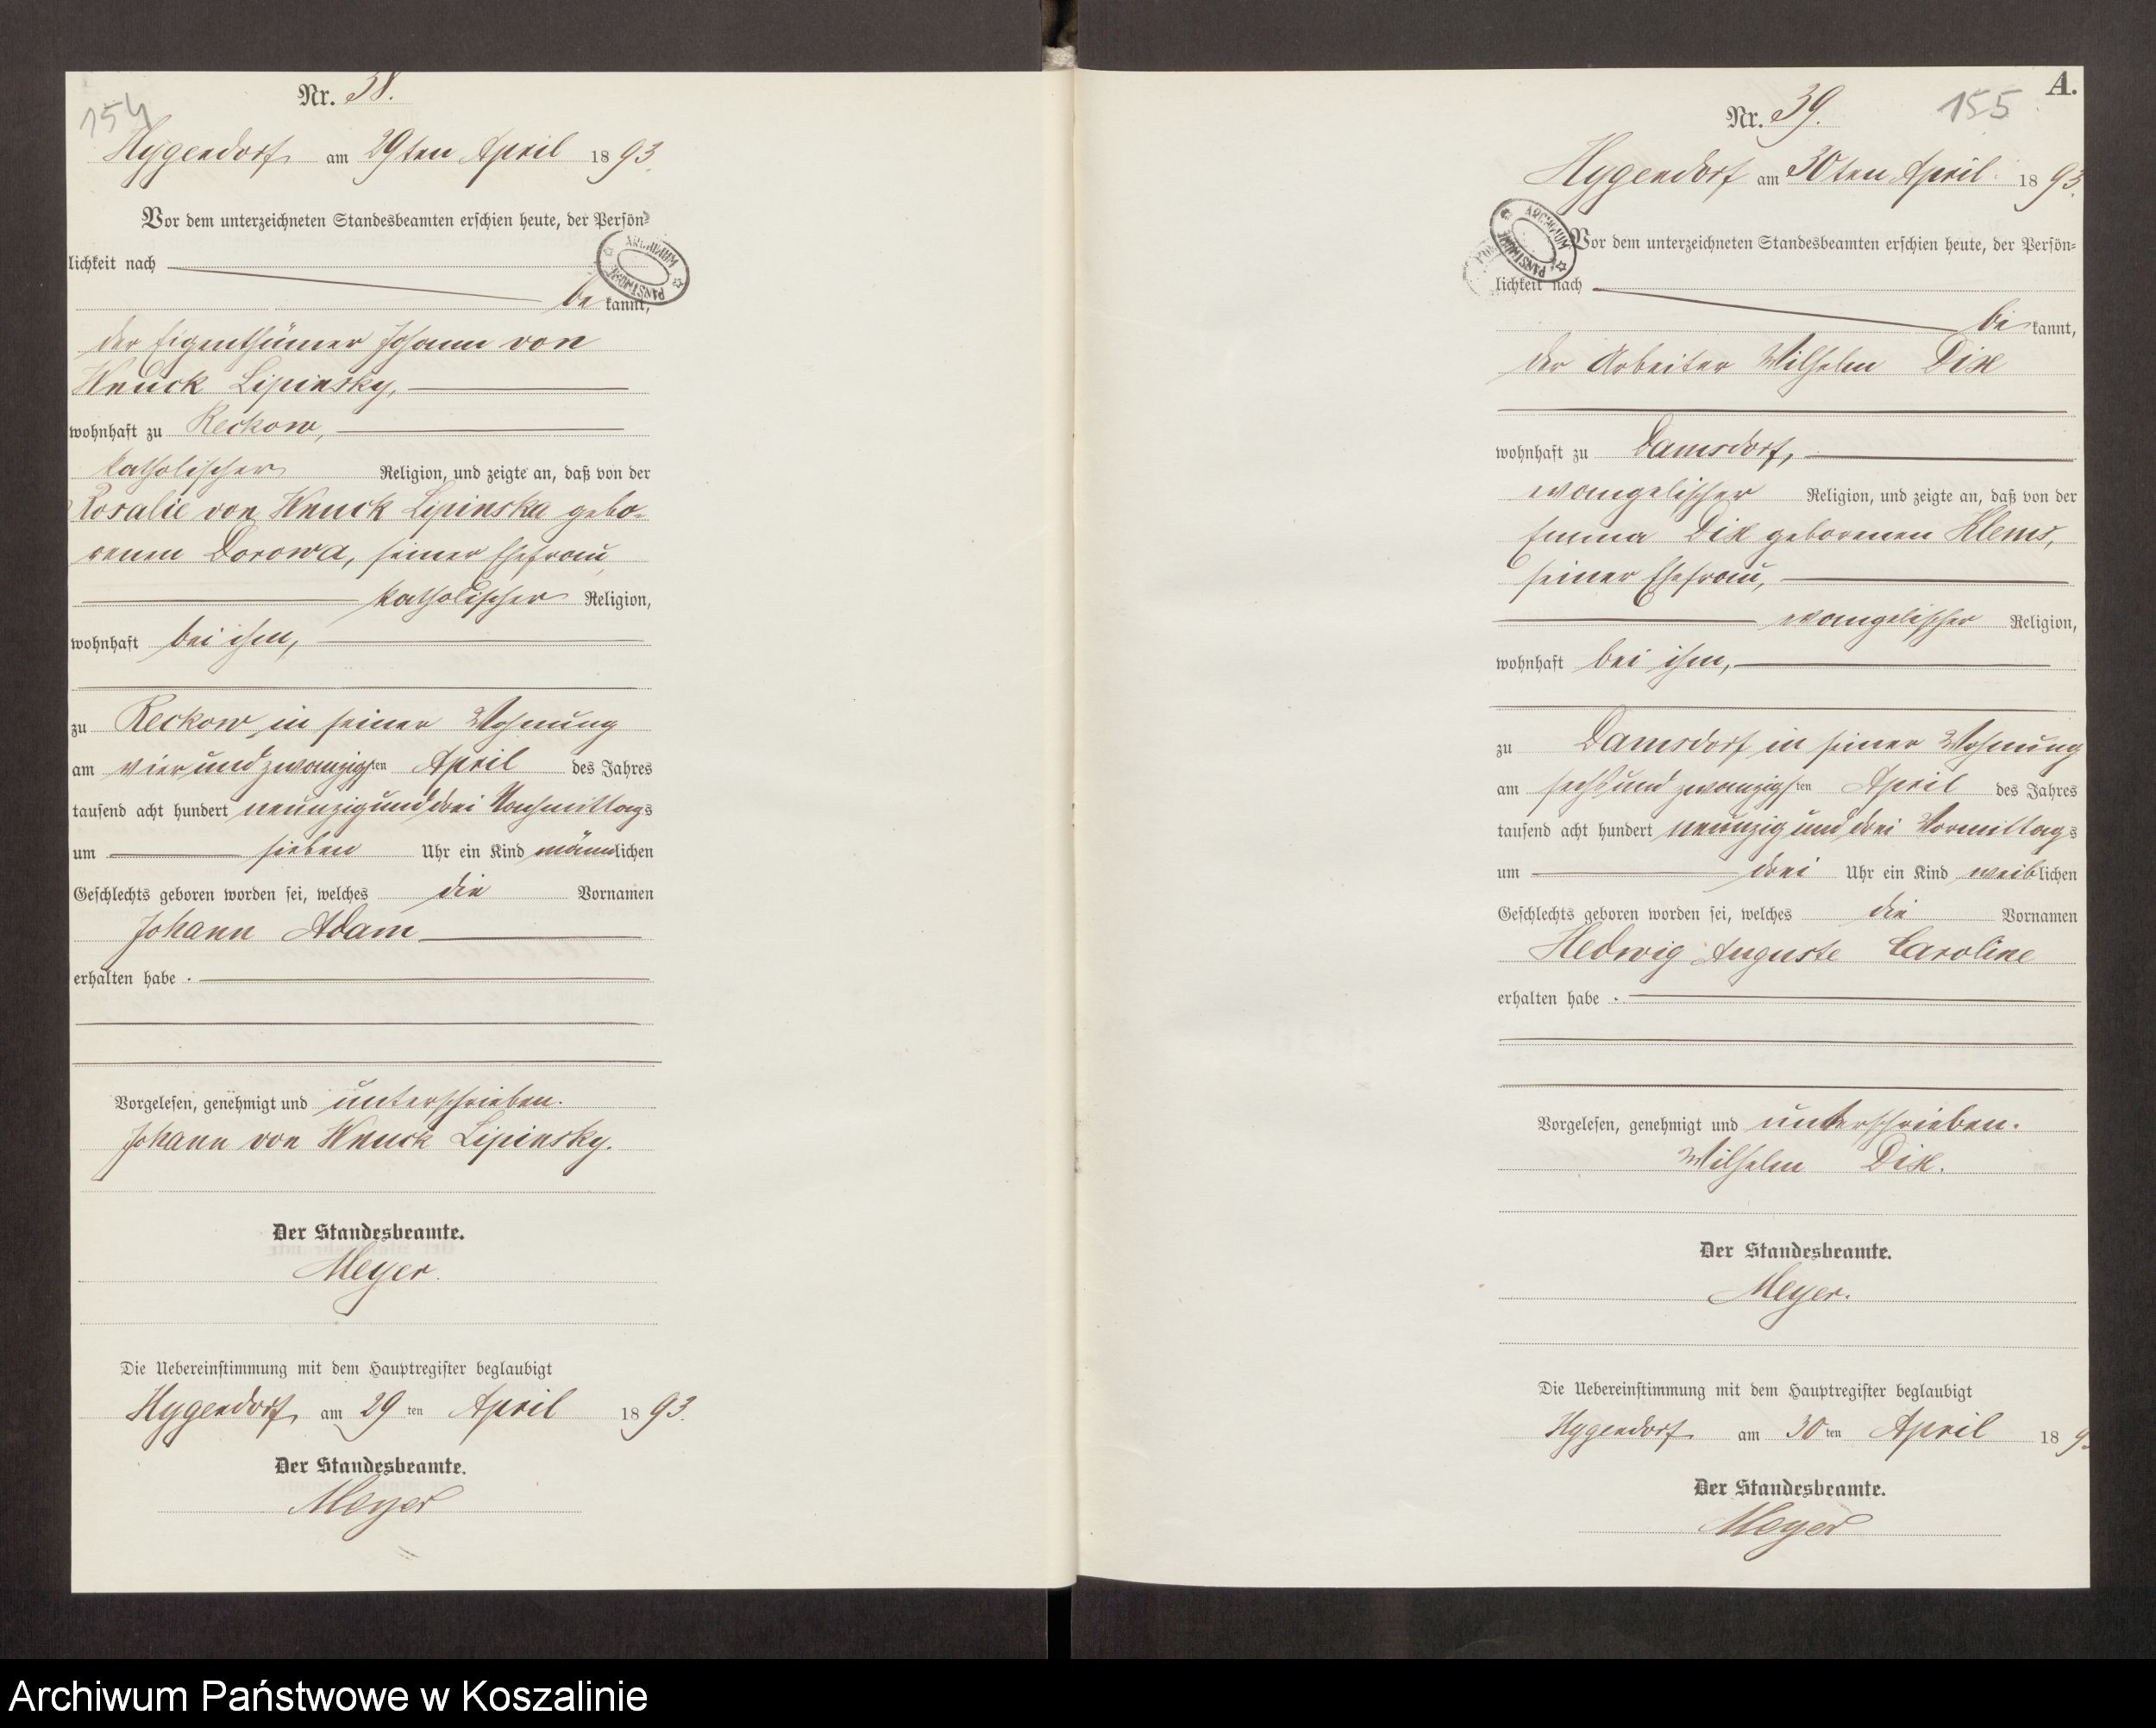 154
Nr. 38.
Hygendorf am 29ten April 1893.
Vor dem unterzeichneten Standesbeamten erschien heute, der Persön-
lichkeit nach
be kannt,
der Eigenthümer Johann von
Wnuck Lipinsky,
wohnhaft zu Reckow,
katholischer Religion, und zeigte an, daß von der
Rosalie von Wnuck Lipinska gebo-
renen Dorowa, seiner Ehefrau,
katholischer Religion,
wohnhaft bei ihm,
zu Reckow in seiner Wohnung
am vierundzwanzigsten April des Jahres
tausend acht hundert neunzig und drei Nachmittags
um sieben Uhr ein Kind männlichen
Geschlechts geboren worden sei, welches die Vornamen
Johann Adam
erhalten habe.
Vorgelesen, genehmigt und unterschrieben.
Johann von Wnuck Lipinsky.
Der Standesbeamte.
Meyer.
Die Uebereinstimmung mit dem Hauptregister beglaubigt
Hygendorf, am 29ten April 1893.
Der Standesbeamte.
Meyer
A.
155
Nr. 39.
Hygendorf am 30ten April 1893.
ARCHIWUM PAŃSTWOWE
Vor dem unterzeichneten Standesbeamten erschien heute, der Persön-
lichkeit nach
be kannt,
der Arbeiter Wilhelm Dix
wohnhaft zu Damsdorf,
evangelischer Religion, und zeigte an, daß von der
Emma Dix geborenen Klems,
seiner Ehefrau,
evangelischer Religion,
wohnhaft bei ihm,
zu Damsdorf in seiner Wohnung
am sechsundzwanzigsten April des Jahres
tausend acht hundert neunzig und drei Vormittags
um drei Uhr ein Kind weiblichen
Geschlechts geboren worden sei, welches die Vornamen
Hedwig Auguste Caroline
erhalten habe.
Vorgelesen, genehmigt und unterschrieben.
Wilhelm Dix.
Der Standesbeamte.
Meyer.
Die Uebereinstimmung mit dem Hauptregister beglaubigt
Hygendorf, am 30ten April 189
Der Standesbeamte.
Meyer
Archiwum Państwowe w Koszalinie